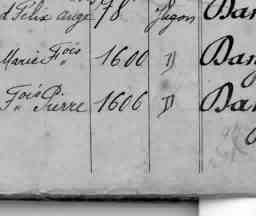 d Félix ange 78 Jugon Dan
Marie Fois 1600 D Dan
Fois Pierre 1606 D Dan